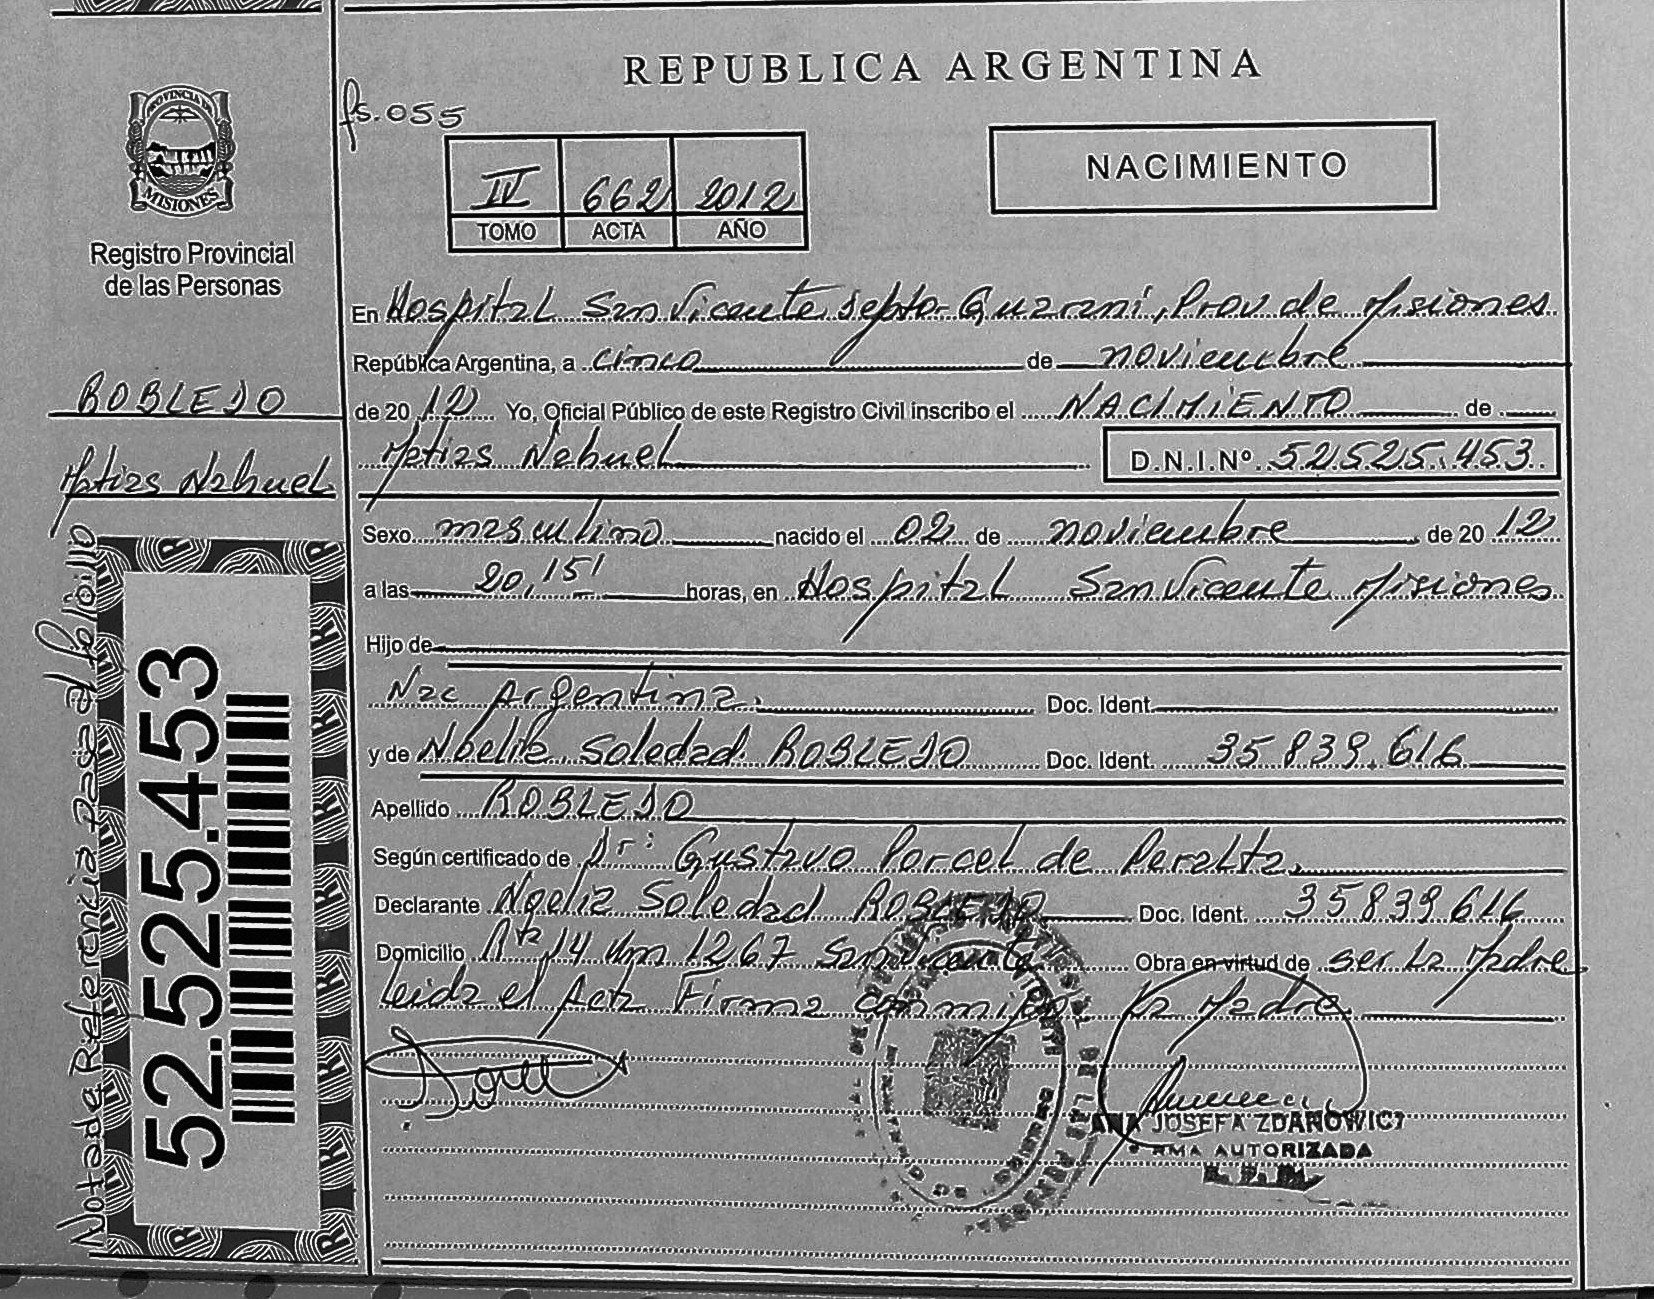 REPUBLICA ARGENTINA
fs.055
IV 662 2012
TOMO ACTA AÑO
NACIMIENTO
PROVINCIA DE
MISIONES
Registro Provincial
de las Personas
ROBLEDO
Matias Nahuel
Nota de Referencia Pasa al folio
52.525.453
En Hospital San Vicente Depto Guarani, Prov. de Misiones
República Argentina, a cinco de noviembre
de 20 12 Yo, Oficial Público de este Registro Civil inscribo el NACIMIENTO de
Matias Nahuel D.N.I.Nº 52.525.453
Sexo masculino nacido el 02 de noviembre de 20 12
a las 20,15' horas, en Hospital San Vicente Misiones
Hijo de
Nac Argentina. Doc. Ident.
y de Noelia Soledad ROBLEDO Doc. Ident. 35 839.616
Apellido ROBLEDO
Según certificado de Dr: Gustavo Porcel de Peralta.
Declarante Noelia Soledad ROBLEDO Doc. Ident. 35839616
Domicilio Rta 14 Km 1267 San Vicente Obra en virtud de ser La Madre
Leida el Acta Firma conmigo La Madre
ANA JOSEFA ZDANOWICZ
AUTORIZADA